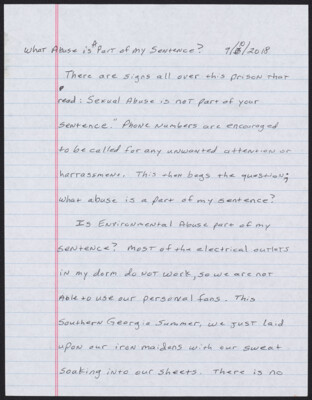 What Abuse is A Part of my Sentence? 9/10/2018
There are signs all over this prison that
read: Sexual Abuse is not part of your
sentence." Phone numbers are encouraged
to be called for any unwanted attention or
harrassment. This then begs the question;
what abuse is a part of my sentence?
Is Environmental Abuse part of my
sentence? Most of the electrical outlets
in my dorm do not work, so we are not
Able to use our personal fans. This
Southern Georgia Summer, we just laid
upon our iron maidens with our sweat
soaking into our sheets. There is no